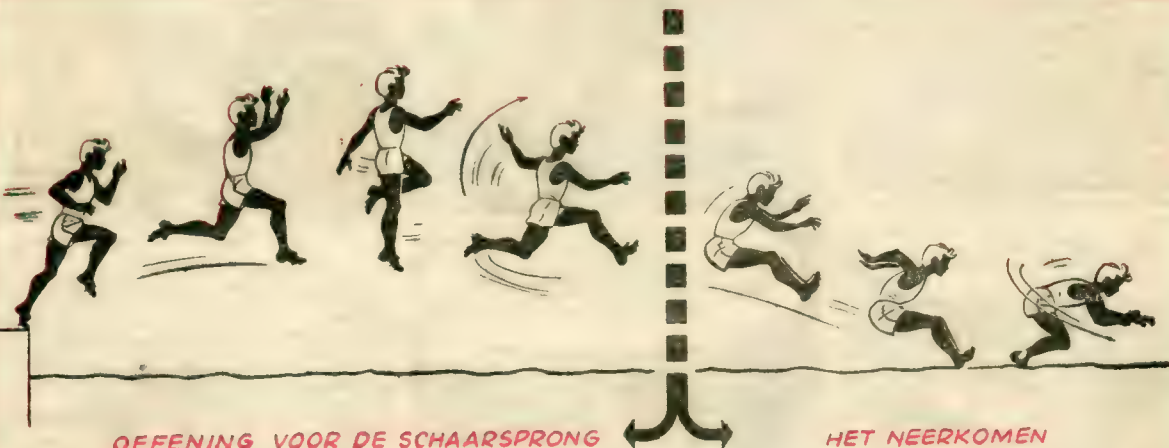 OEFENING VOOR DE SCHAARSPRONG
HET NEERKOMEN